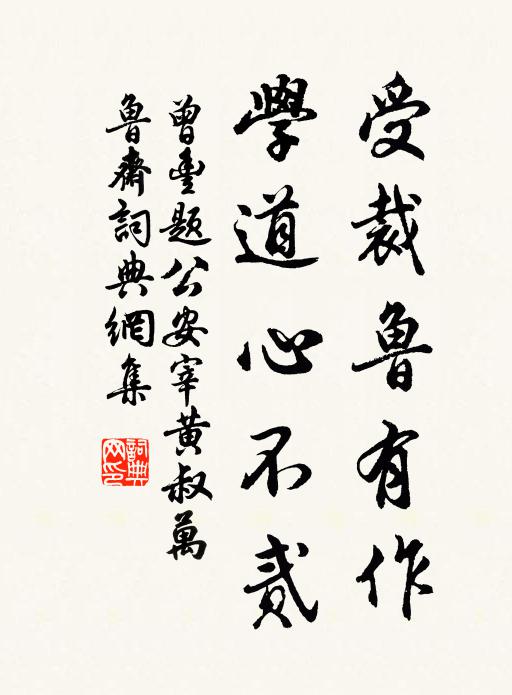 受裁魯有作
學道心不貳
曾豐題公安宰黃叔萬
魯齋詞典網集
詞典
网印